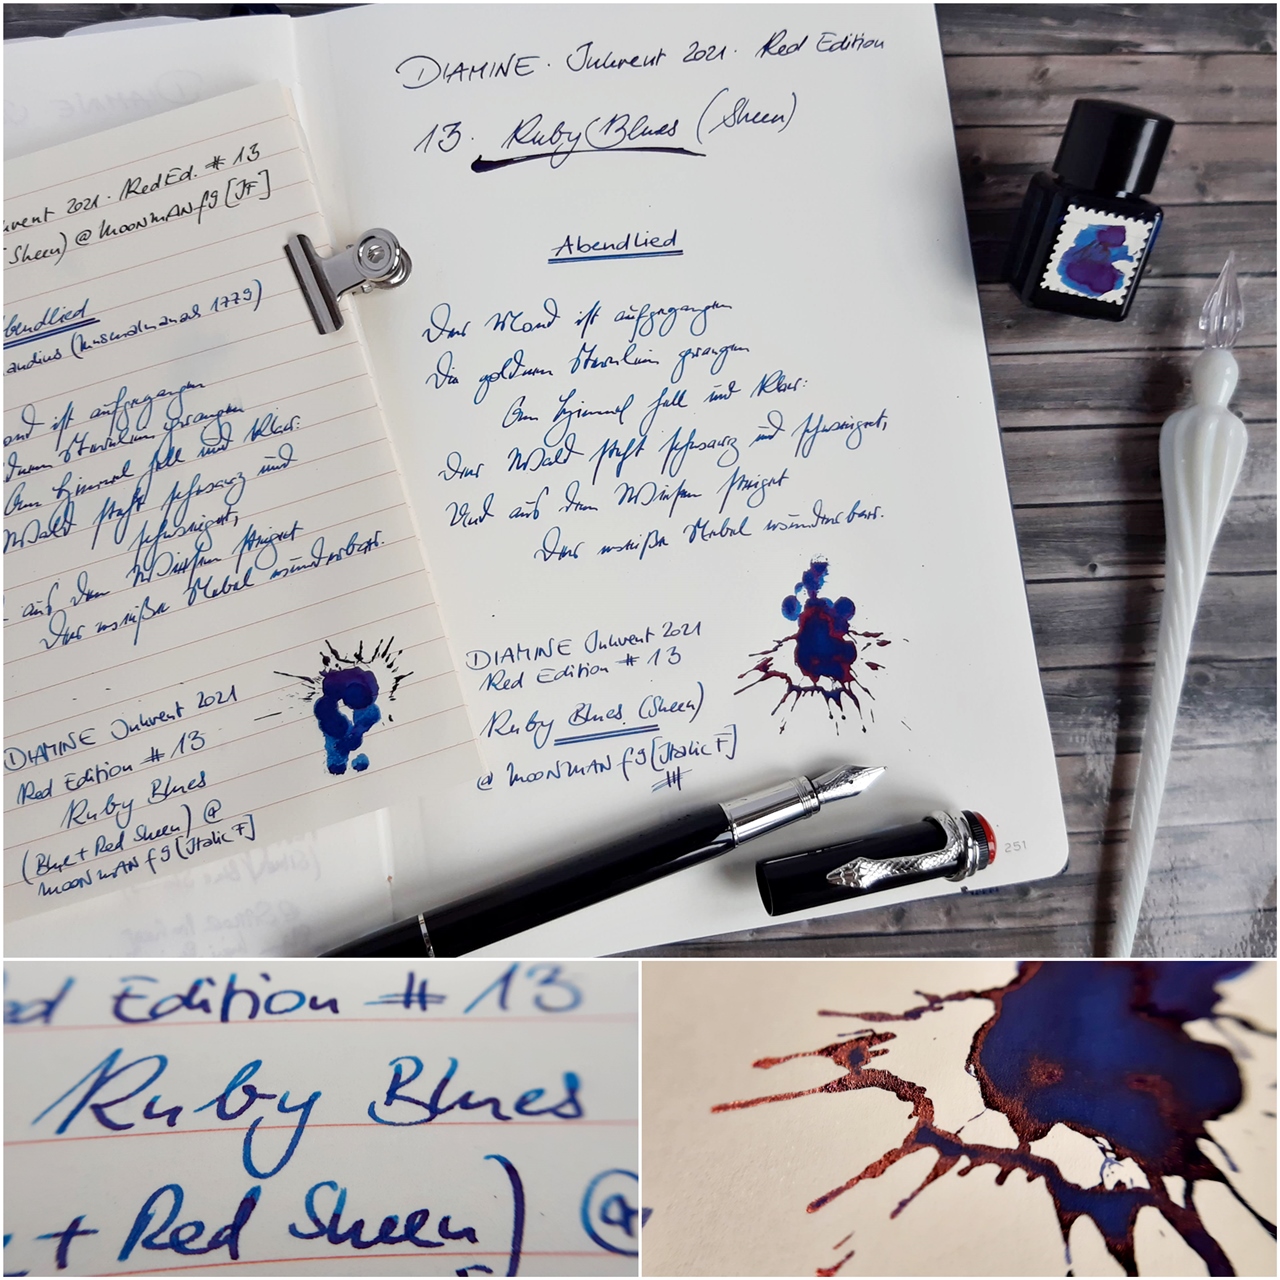 DIAMINE · Inkvent 2021 · Red Edition
13. Ruby Blues (Sheen)
Abendlied
Der Mond ist aufgegangen
Die goldnen Sternlein prangen
Am Himmel hell und klar:
Der Wald steht schwarz und schweiget,
Und aus den Wiesen steiget
Der weiße Nebel wunderbar.
DIAMINE Inkvent 2021
Red Edition # 13
Ruby Blues (Sheen)
@ MOONMAN f9 [Italic F]
251
2021 · Red Ed. # 13
Sheen) @ MOONMAN f9 [IF]
bendlied
audius (Musenalmanach 1779)
ond ist aufgegangen
Sternlein prangen
Am Himmel hell und klar:
Wald steht schwarz und
schweiget,
aus den Wiesen steiget
Der weiße Nebel wunderbar.
DIAMINE Inkvent 2021
Red Edition # 13
Ruby Blues
(Blue + Red Sheen) @
MOONMAN f9 [Italic F]
ed Edition # 13
Ruby Blues
+ Red Sheen) @